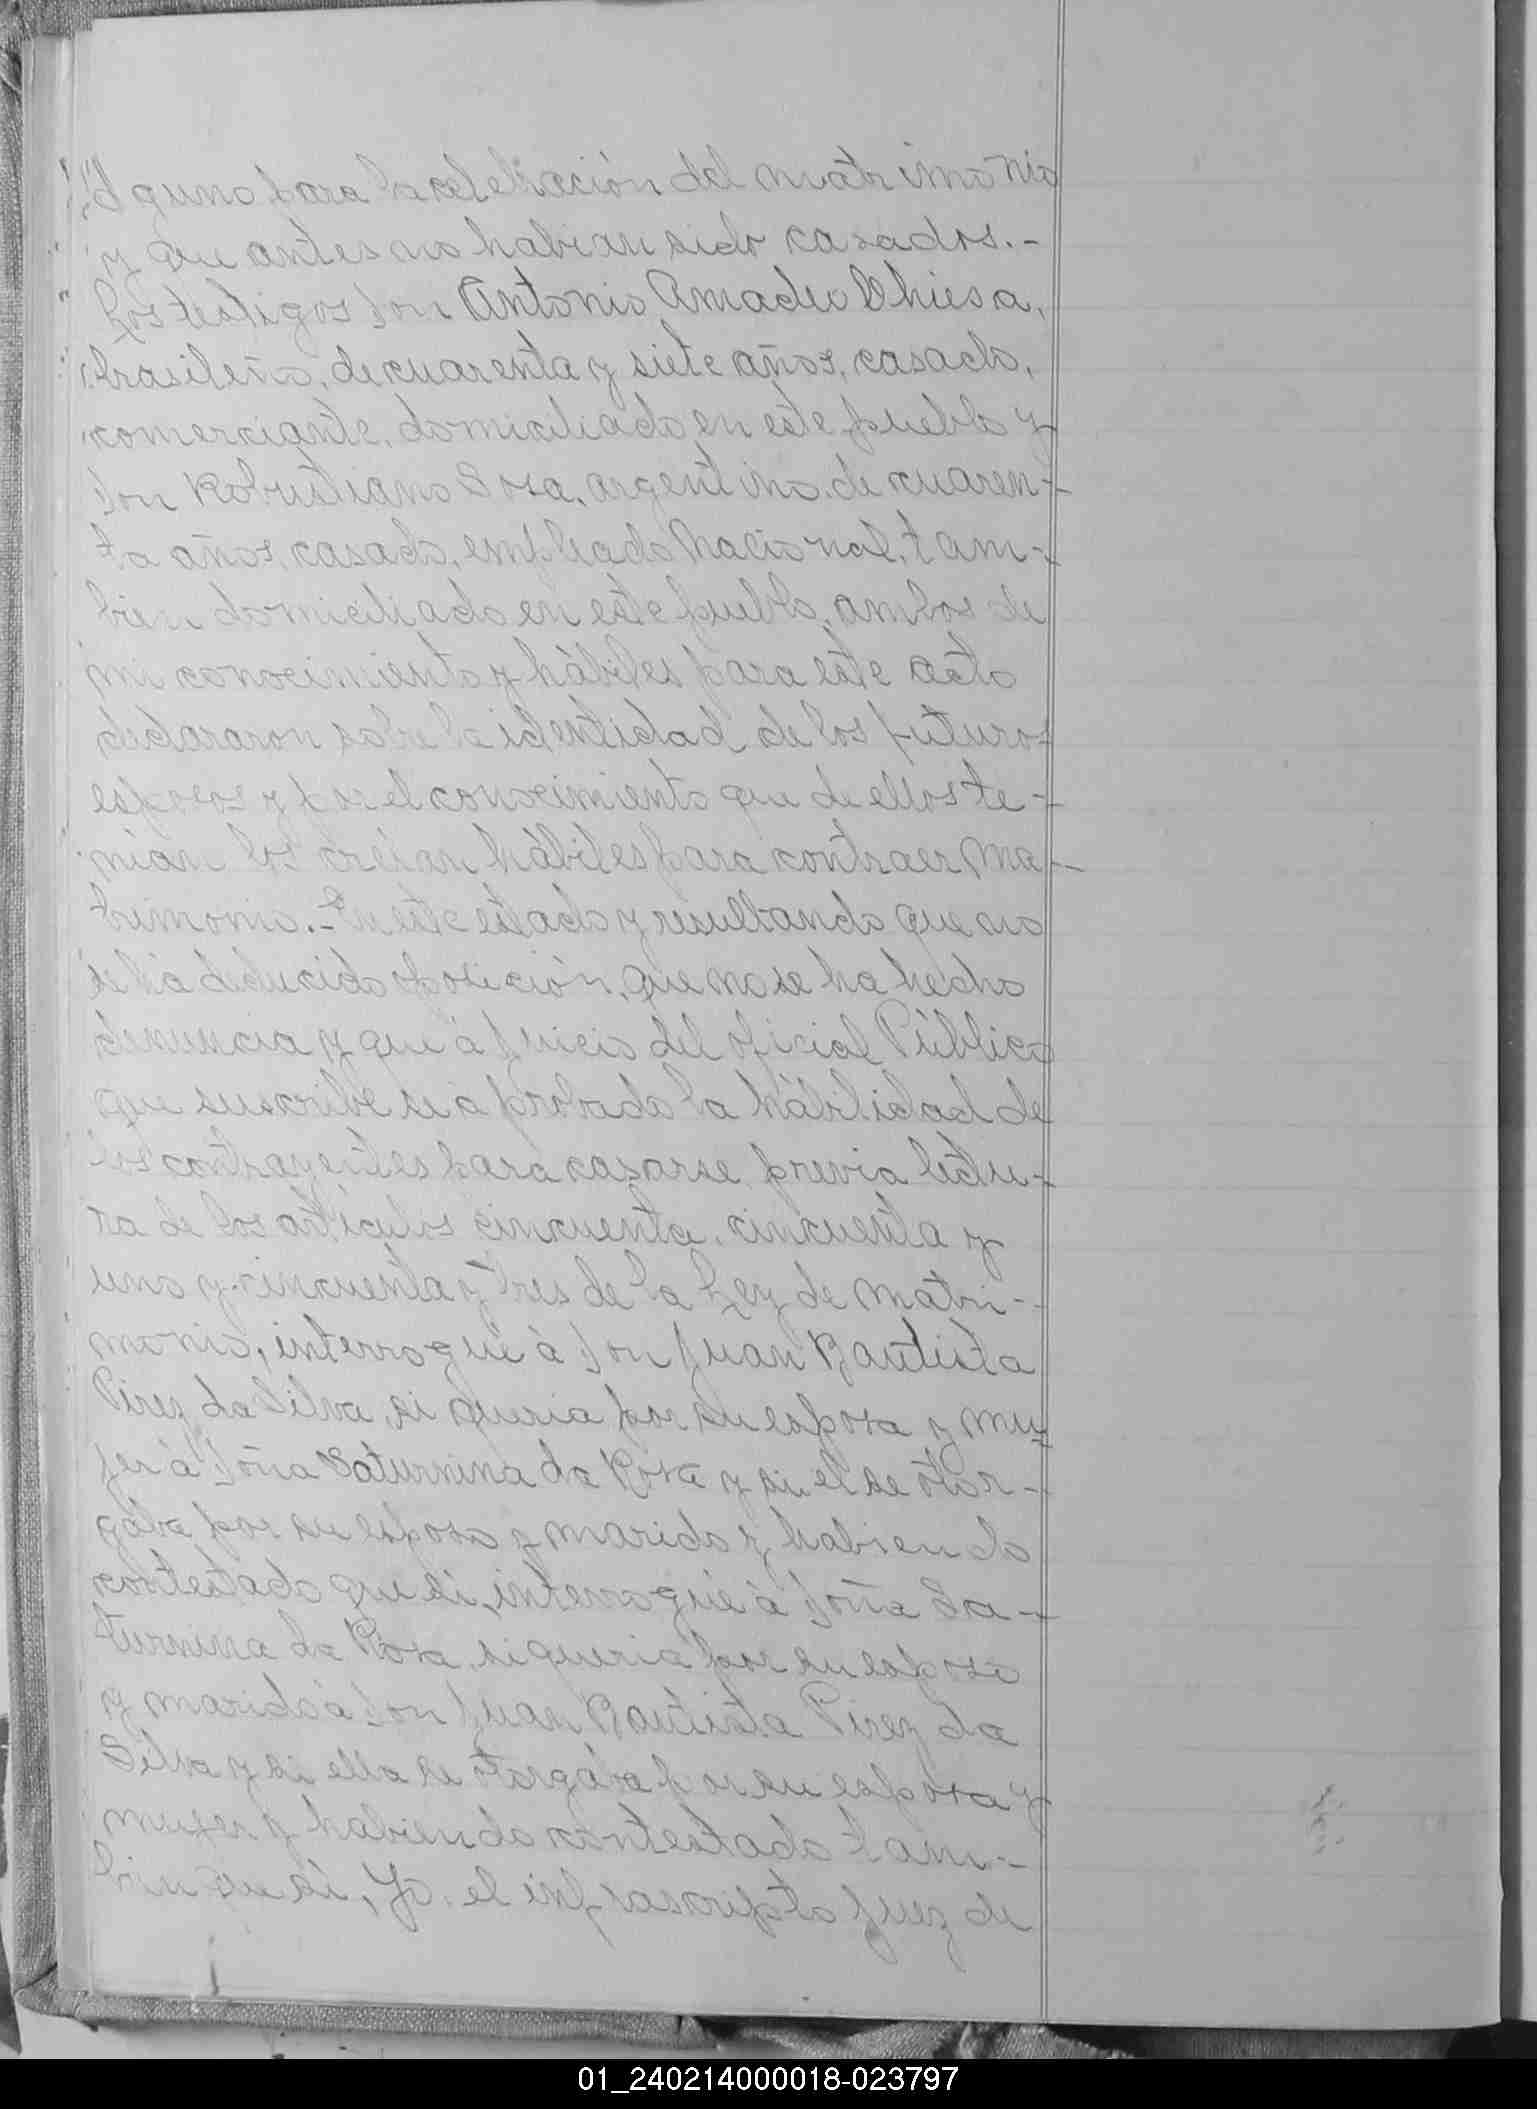 alguno para la celebración del matrimonio
y que antes no habian sido casados.-
Los testigos Don Antonio Amadeo Chiesa,
brasileño, de cuarenta y siete años, casado,
comerciante, domiciliado en este pueblo y
Don Robustiano Sosa, argentino, de cuaren-
ta años, casado, empleado Nacional, tam-
bien domiciliado en este pueblo, ambos de
mi conocimiento y hábiles para este acto
declararon sobre la identidad de los futuros
esposos y por el conocimiento que de ellos te-
nian los creian hábiles para contraer ma-
trimonio.- En este estado y resultando que no
se ha deducido oposición, que no se ha hecho
denuncia y que á juicio del oficial Público
que suscribe se a probado la hábilidad de
los contrayentes para casarse, previa lectu-
ra de los artículos cincuenta, cincuenta y
uno y cincuenta y tres de la Ley de Matri-
monio, interrogué á Don Juan Bautista
Pirez da Silva, si queria por su esposa y mu-
jer á Doña Saturnina da Rosa y si el se otor-
gába por su esposo y marido y habiendo
contestado que si, interrogué á Doña Sa-
turnina da Rosa, si queria por su esposo
y marido á Don Juan Bautista Pirez da
Silva y si ella se otorgába por su esposa y
mujer y habiendo contestado tam-
bien que si, Yo, el infrascripto Juez de
01_240214000018-023797